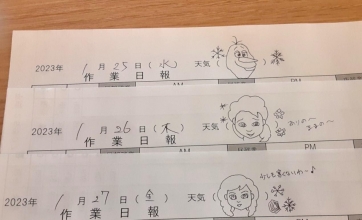 2023年 1月25日(水) 天気( )
作業日報
2023年 1月26日(木) 天気( )
ありの〜
ままの〜
作業日報
PM
2023年 1月27日(金) 天気( )
少しも寒くないわ〜♪
作業日報